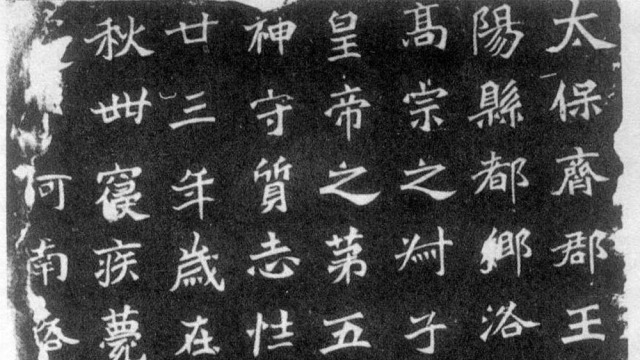 太保齊郡王
陽縣都鄉洛
髙宗之叔子
皇帝之第五
神守質志性
廿三年歲在
秋卌寢疾薨
河南